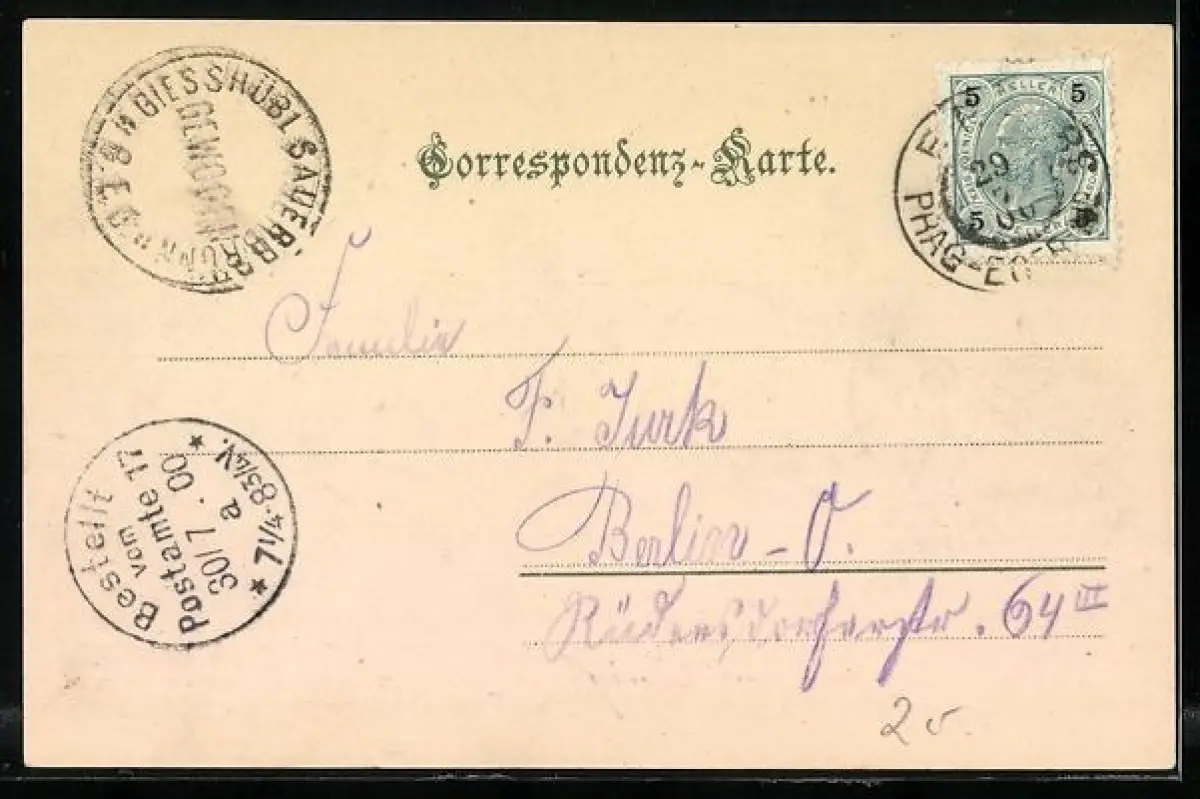 GIESSHÜBL SAUERBRUNN
Correspondenz-Karte.
5 HELLER 5
29
00
5
PRAG-EGER
Familie
F. Turk
Berlin - O.
Rüdersdorferstr. 64 III
Bestellt
vom
Postamte 17
30/7.00
a
★ 7 1/4-8 3/4 V. ★
2